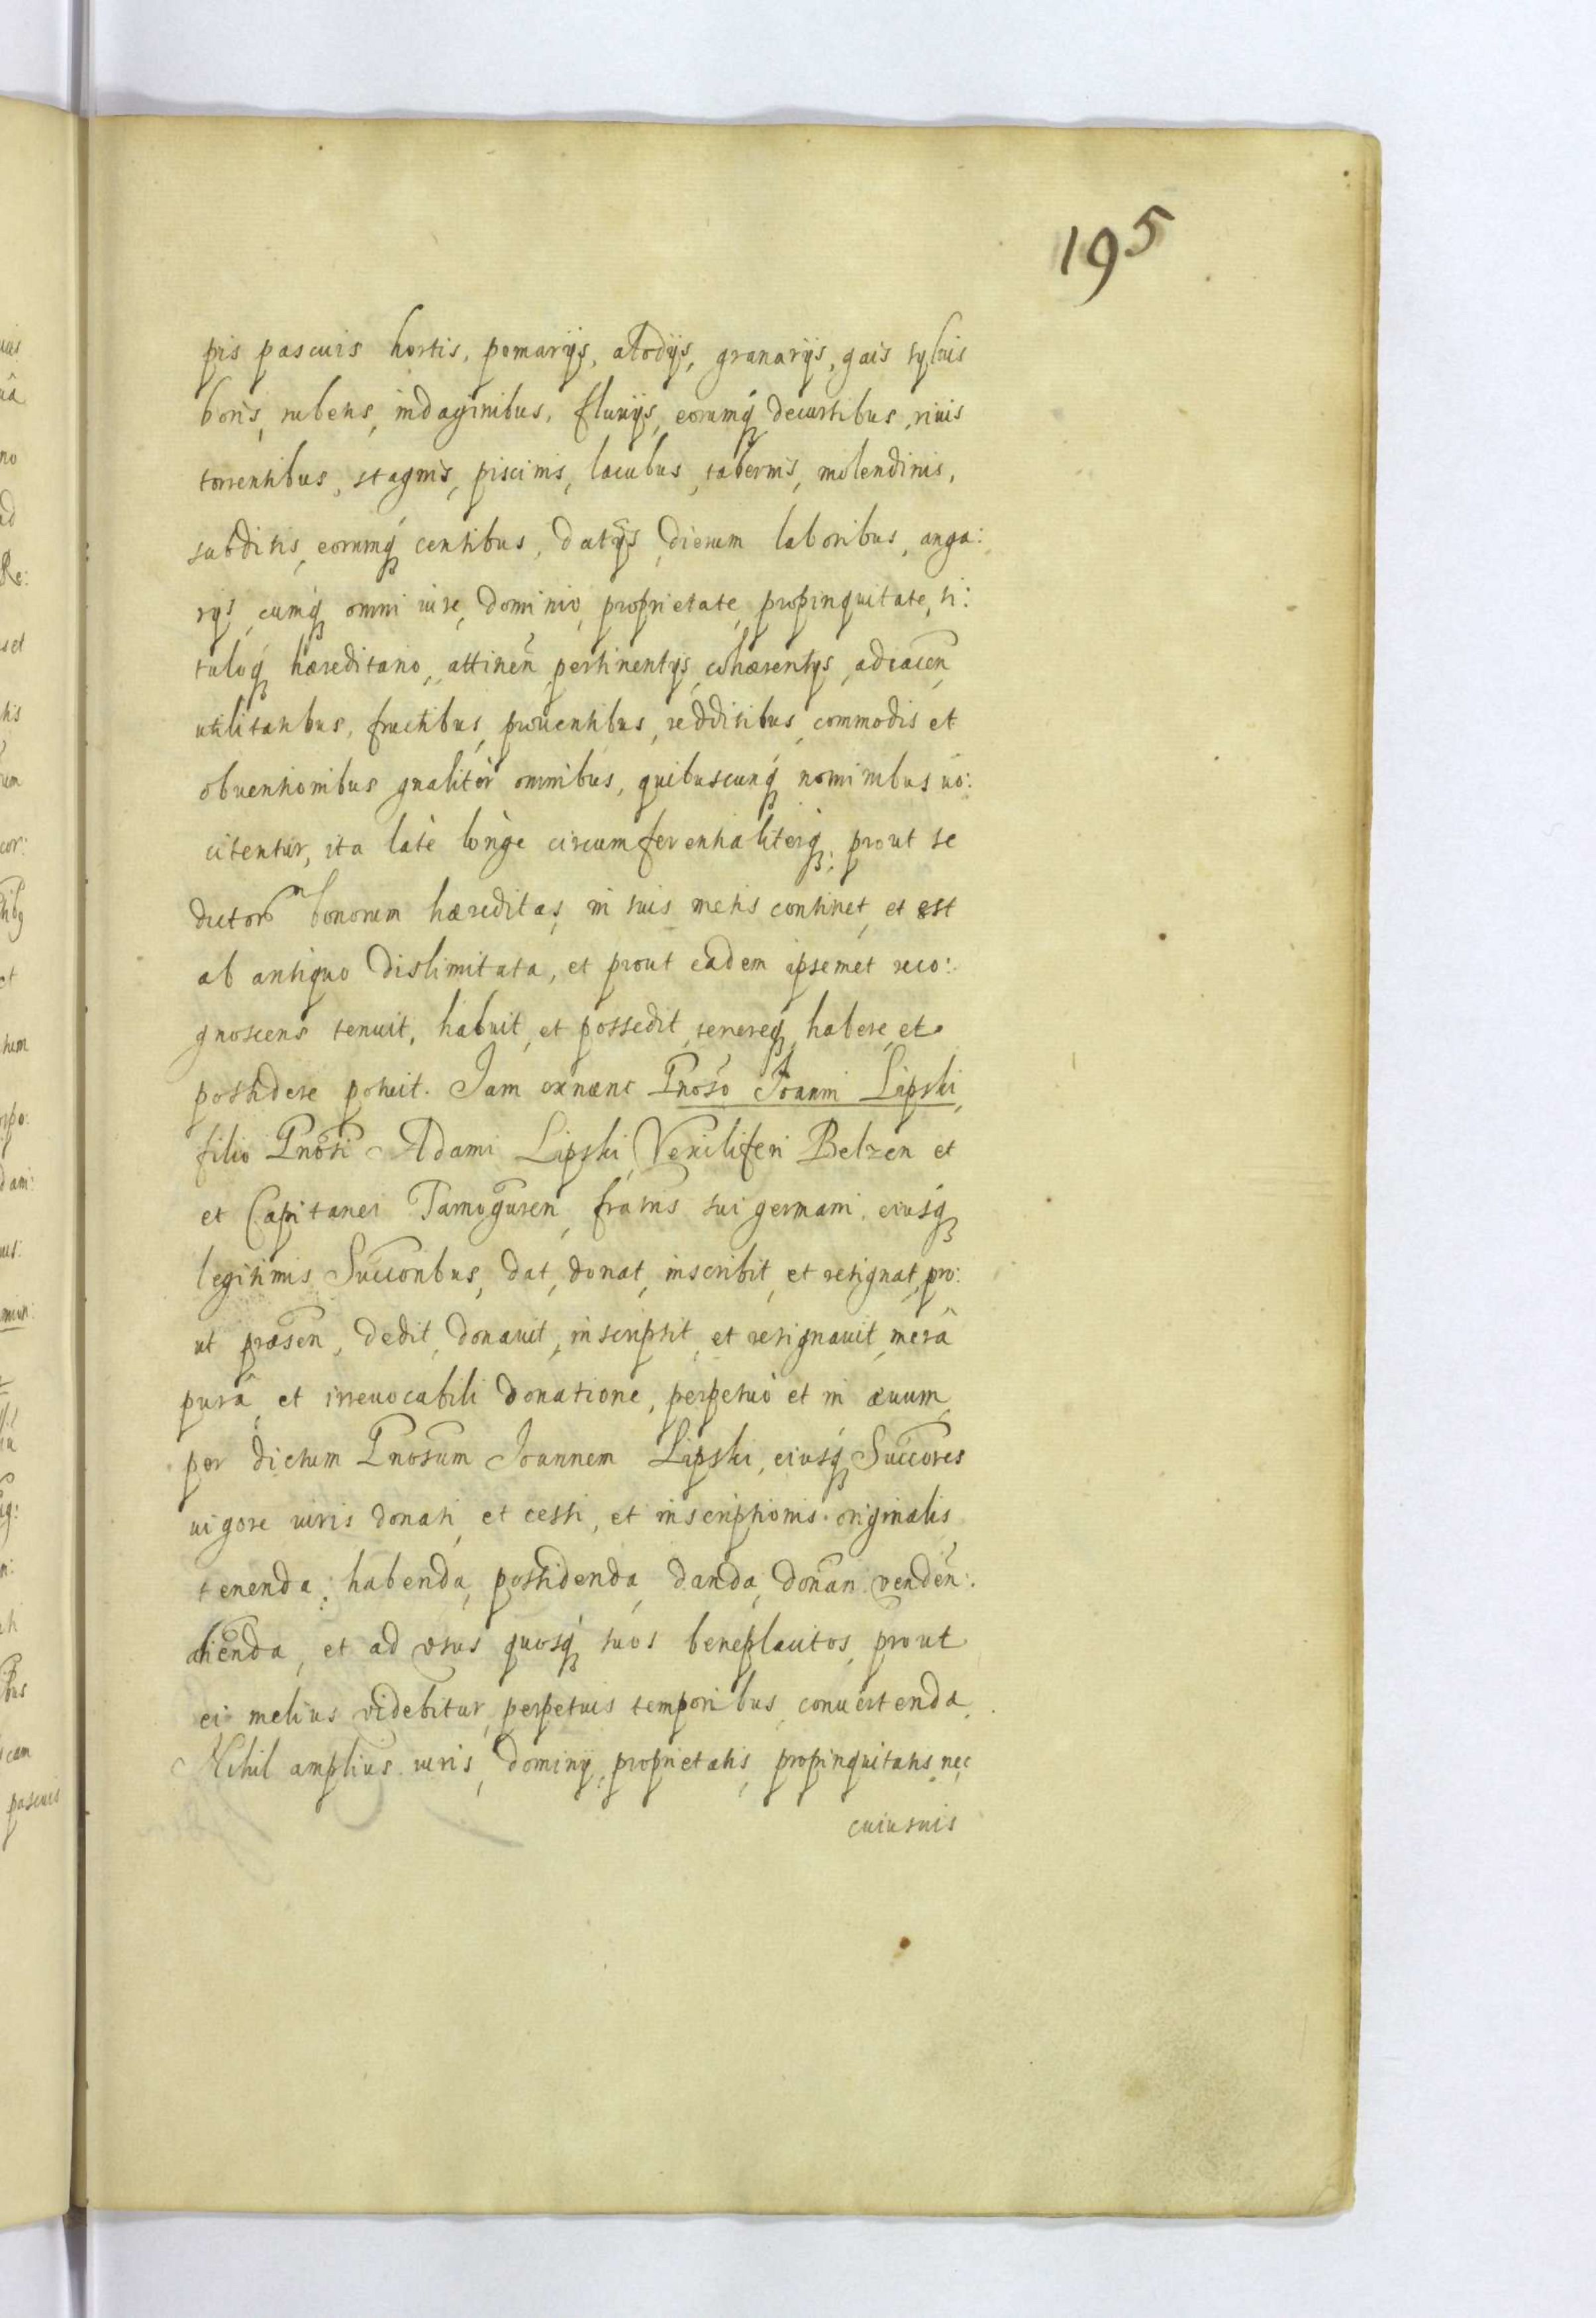 195
pis pascuis hortis, pomarijs, alodijs, granarijs, gais syluis
boris, rubetis, indaginibus, fluuijs, eorumq́ decursibus, riuis
torrentibus, stagnis, piscinis, lacubus, tabernis, molendinis,
subditis, eorumq́ centibus, datijs, dierum laboribus, anga:
rijs, cumq́ omni iure, dominio, proprietate, propinquitate, ti:
tuloq́ hæreditario, attinen̄, pertinentijs, cohærentijs, adiacen̄
utilitatibus, fructibus, prouentibus, redditibus, commodis et
obuentionibus gnalitèr omnibus, quibuscunq́ nominibus uo:
citentur, ita latè longè circumferentialiterq́; prout se
dictor̄ bonorum hæreditas, in suis metis continet, et est
ab antiquo dislimitata, et prout eadem ipsemet reco:
gnoscens tenuit, habuit, et possedit, tenereq́, habere, et
possidere potuit. Iam exnunc Gnoso Ioanni Lipski,
filio Gnosi Adami Lipski, Vexiliferi Belzen̄ et
et Capitanei Tarnoguren̄, fratris sui germani, eiusq́
legitimis Succoribus, dat, donat, inscribit, et resignat, pro:
ut præsen̄, dedit, donauit, inscripsit, et resignauit, merâ
purâ, et irreuocabili donatione, perpetuò et in æuum,
per dictum Gnosum Ioannem Lipski, eiusq́ Succores
uigore iuris donati, et cessi, et inscriptionis originalis
tenenda, habenda, possidenda, danda, donan̄ venden̄:
alienda, et ad vsus quosq́ suos beneplacitos, prout
ei melius videbitur, perpetuis temporibus, conuertenda.
Nihil amplius iuris, dominij, proprietatis, propinquitatis, nec
cuiusuis